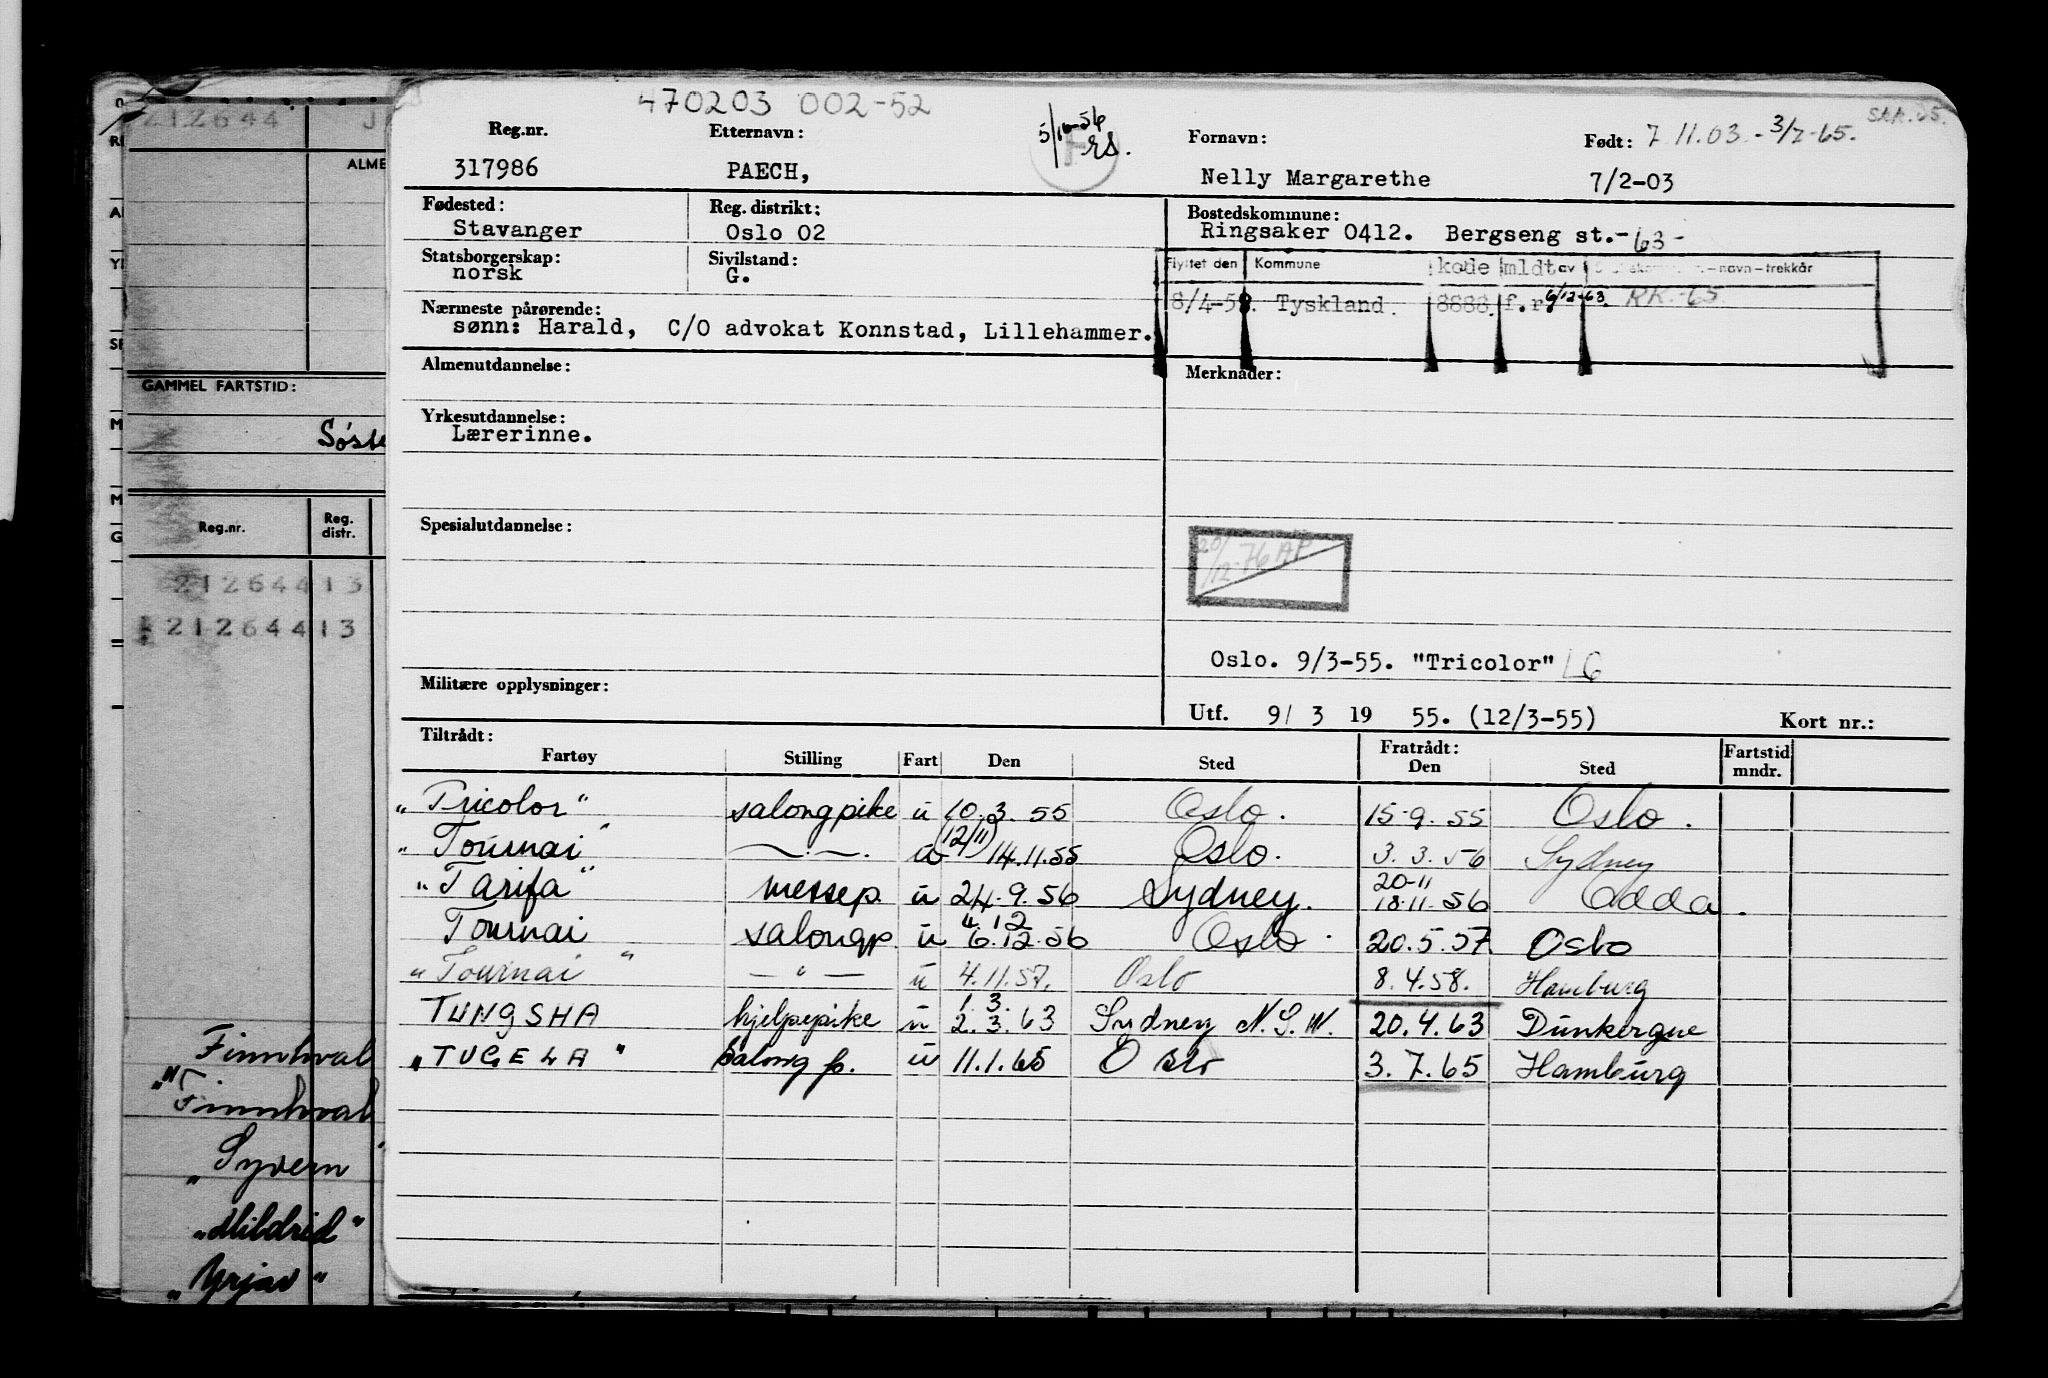 470203 002-52
Reg.nr. Etternavn: 5/10-56 rs. Fornavn: Født: 7.11.03.-3/7-65.
317986 PAECH, Nelly Margarethe 7/2-03
Fødested: Reg. distrikt: Bostedskommune:
Stavanger Oslo 02 Ringsaker 0412. Bergseng st.-63-
Statsborgerskap: Sivilstand: Flyttet den Kommune kode mldt av -navn-trekkår
norsk G.
Nærmeste pårørende: 8/4-58. Tyskland. 8888. f.r. 6/12-63. RK.-65
sønn: Harald, C/O advokat Konnstad, Lillehammer.
Almenutdannelse: Merknader:
Yrkesutdannelse:
Lærerinne.
Spesialutdannelse:
20/12-76 AP
Oslo. 9/3-55. "Tricolor" LG
Militære opplysninger:
Utf. 9/ 3 19 55. (12/3-55) Kort nr.:
Tiltrådt: Fratrådt: Fartstid
Fartøy Stilling Fart Den Sted Den Sted mndr.
"Tricolor" salongpike u 10.3.55 Oslo. 15.9.55 Oslo.
"Tournai" —.—. u (12/11) 14.11.55 Oslo. 3.3.56 Sydney
"Tarifa" messep. u 24.9.56 Sydney. 20-11 18.11.56 Odda.
Tournai" salongp. u 4.12 6.12.56 Oslo. 20.5.57 Oslo
"Tournai — " — u 4.11.57. Oslo 8.4.58. Hamburg
TUNGSHA hjelpepike u 1.3. 2.3.63 Sydney N.S.W. 20.4.63 Dunkerque
"TUGELA" Salong p. u 11.1.65 Oslo 3.7.65 Hamburg
212644 J
ALME
GAMMEL FARTSTID:
Søste
Reg.nr. Reg. distr.
212644 13
212644 13
Finnhval
"Finnhval
"Syvern"
"Mildrid"